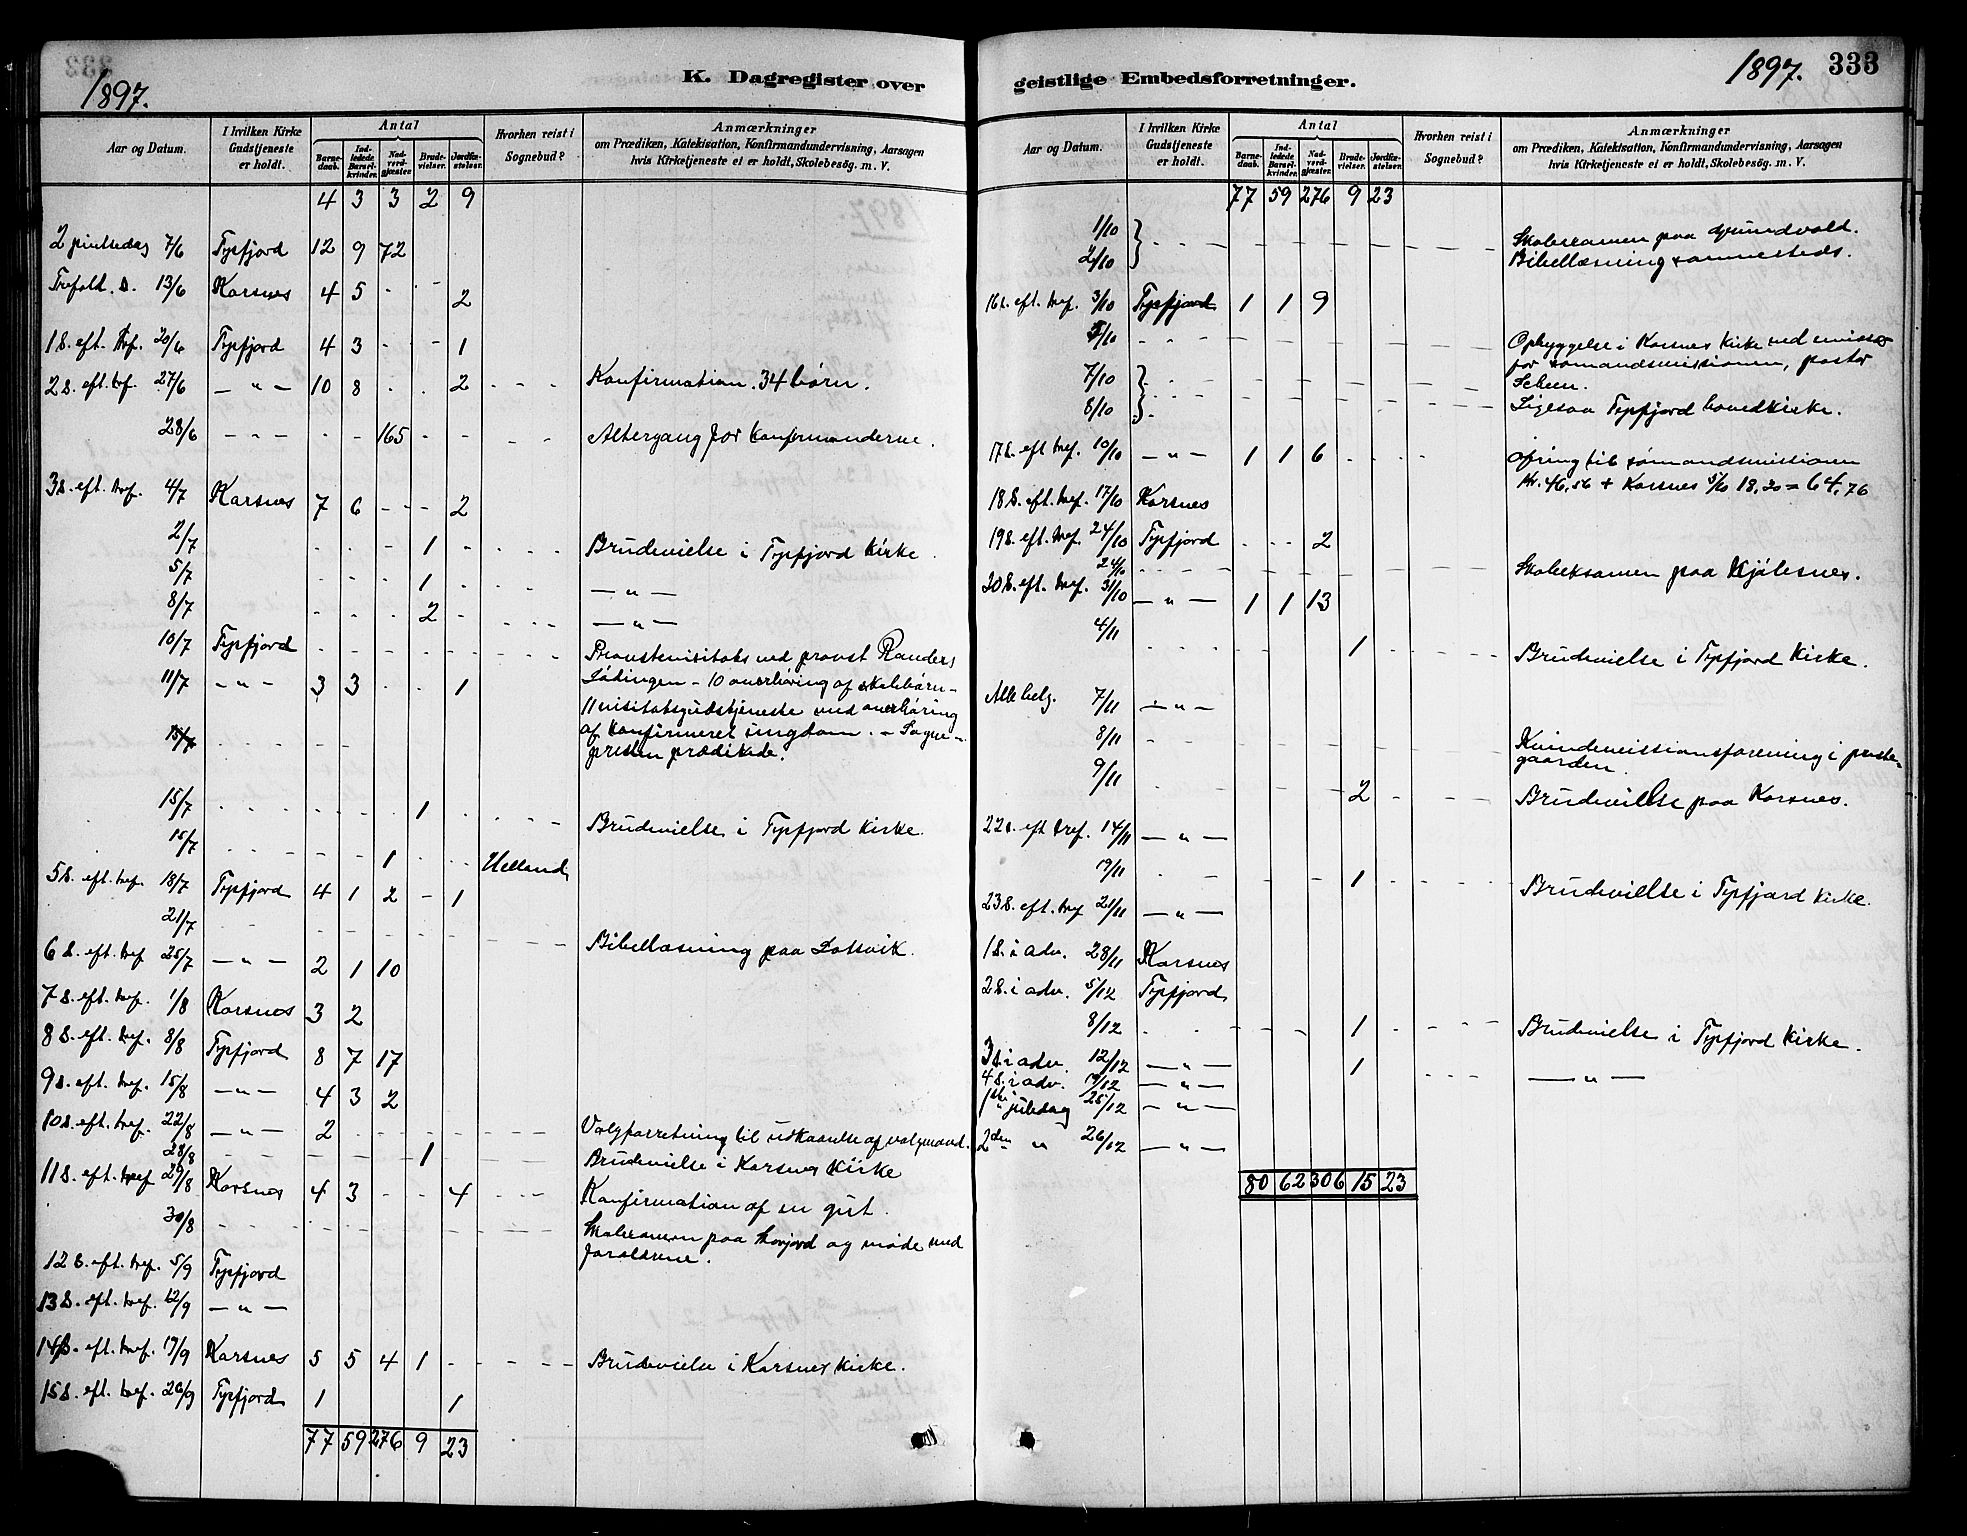 1897.
K. Dagregister over
Aar og Datum. I hvilken Kirke Gudstjeneste er holdt. Antal Barnedaab. Indledede Barselkvinder. Nadverdgjæster. Brudevielser. Jordfæstelser. Hvorhen reist i Sognebud? Anmærkninger om Prædiken, Katekisation, Konfirmandundervisning, Aarsagen hvis Kirketjeneste ei er holdt, Skolebesøg. m. V.
4 3 3 2 9
2 pintsedag 7/6 Tysfjord 12 9 72
Trefold. s. 13/6 Korsnes 4 5 - - 2
1 S. eft. tref. 20/6 Tysfjord 4 3 - - 1
2 S. eft. tref. 27/6 — " — 10 8 . . 2 - - - Konfirmation. 34 børn.
28/6 - - - - - 165 - - - - Altergang for konfirmanderne.
3 S. eft. tref. 4/7 Korsnes 7 6 - - - 2
2/7 - - - 1 - - - - Brudevielse i Tysfjord Kirke.
5/7 - - - 1 - - - — " —
8/7 - - - 2 - - - - — " —
10/7 Tysfjord - - - - - - - - Provstevisitats ved provst Randers
11/7 — " — 3 3 . . 1 Lødingen - 10 overhøring af skolebørn -
11 visitatsgudstjeneste med overhøring
15/7 - - - - - - af konfirmeret ungdom. - Sogne-
presten prædikede.
15/7 - - - - - - 1 - - - - Brudevielse i Tysfjord Kirke.
15/7 - - - - - 1 . - - Helland
5 S. eft. tref. 18/7 Tysfjord 4 1 2 - 1
21/7 - - - - - - - - - - Bibellæsning paa
6 S. eft. tref 25/7 — " — 2 1 10
7 S. eft. tref. 1/8 Korsnes 3 2
8 S. eft. tref. 8/8 Tysfjord 8 7 17
9 S. eft. tref. 15/8 — " — 4 3 2
10 S. eft. tref. 22/8 — " — 2 - - - - - - - Valgforretning til udkaarelse af valgmænd.
28/8 - - - - - - 1 - - - Brudevielse i Korsnes Kirke
11 S. eft. tref 29/8 Korsnes 4 3 - - 4 - - Konfirmation af en gut.
30/8 - - - - - - - - - - Skoleeksamen paa og møde med
forældrene.
12 S. eft. tref. 5/9 Tysfjord
13 S. eft. tref. 12/9 — " —
14 S. eft. tref. 19/9 Korsnes 5 5 4 1 - - - - Brudevielse i Korsnes Kirke.
15 S. eft. tref. 26/9 Tysfjord 1 1
77 59 276 9 23
geistlige Embedsforretninger.
1897. 333
Aar og Datum. I hvilken Kirke Gudstjeneste er holdt. Antal Barnedaab. Indledede Barselkvinder. Nadverdgjæster. Brudevielser. Jordfæstelser. Hvorhen reist i Sognebud? Anmærkninger om Prædiken, Katekisation, Konfirmandundervisning, Aarsagen hvis Kirketjeneste ei er holdt, Skolebesøg. m. V.
77 59 276 9 23
1/10 } - - - - - - - - - Skoleexamen paa
2/10 } Bibellæsning sammesteds.
16 S. eft. tref. 3/10 Tysfjord 1 1 9
5/10 - - - - - - - - - - Opbyggelse i Korsnes Kirke ved
7/10 } - - - - - - - - for sømandsmissionen, pastor
8/10 } - - - - - - - - Ligesaa Tysfjord hovedkirke.
17 S. eft tref. 10/10 — " — 1 1 6 . . . . Ofring til sømandsmissionen
kr. 46,56 + Korsnes 5/10 18,20 = 64,76
18 S. eft. tref. 17/10 Korsnes
19 S. eft. tref. 24/10 Tysfjord . - - 2
- - - - - - - - - - Skoleeksamen paa Kjølesnes.
20 S. eft. tref. 31/10 — " — 1 1 13
4/11 - - - - - - 1 - - - - Brudevielse i Tysfjord Kirke.
Alle helg. 7/11 — " —
8/11 - - - - - - - - - - Kvindemissionsforening i preste-
gaarden.
9/11 - - - - - - 2 - - - Brudevielse paa Korsnes.
22 S. eft tref. 14/11 — " —
19/11 - - - - - - 1 - - - - Brudevielse i Tysfjord Kirke.
23 S. eft. tref 21/11 — " —
1 S. i adv. 28/11 Korsnes
2 S. i adv. 5/12 Tysfjord
8/12 - - - - - 1 - - - - Brudevielse i Tysfjord Kirke.
3 S. i adv. 12/12 — " — 1 - - - — " —
4 S. i adv. 19/12 — " —
1ste juledag 25/12 — " —
2den " 26/12 — " —
80 62 306 15 23